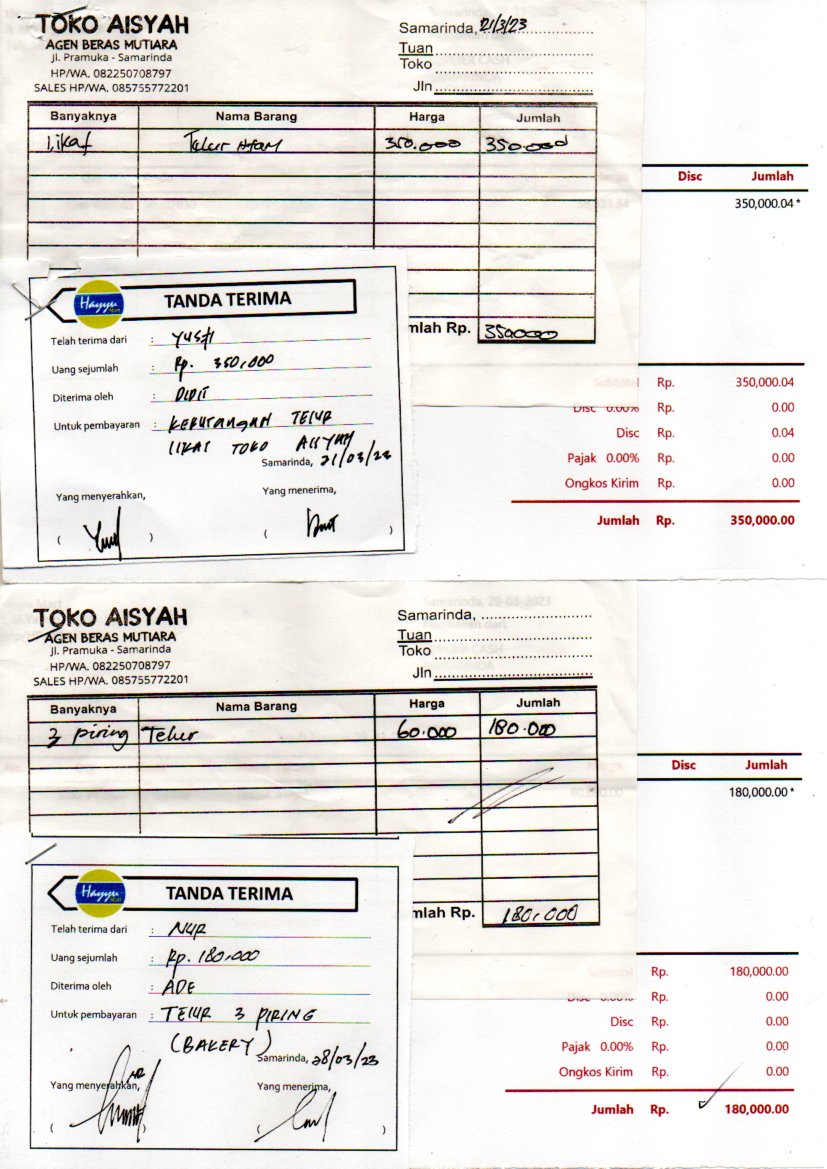 TOKO AISYAH
AGEN BERAS MUTIARA
Jl. Pramuka - Samarinda
HP/WA. 082250708797
SALES HP/WA. 085755772201
Samarinda, 21/3/23
Tuan
Toko
Jln
Banyaknya Nama Barang Harga Jumlah
1, ikat Telur Ayam 350.000 350.000
Disc Jumlah
350,000.04 *
mlah Rp. 350000
Hayyu
TANDA TERIMA
Telah terima dari : YUSFI
Uang sejumlah : Rp. 350,000
Diterima oleh : DIDIT
Untuk pembayaran : KEKURANGAN TELUR
1 IKAT TOKO AISYAH
Samarinda, 21/03/23
Yang menyerahkan, Yang menerima,
( ) ( )
Subtotal Rp. 350,000.04
Disc 0.00% Rp. 0.00
Disc Rp. 0.04
Pajak 0.00% Rp. 0.00
Ongkos Kirim Rp. 0.00
Jumlah Rp. 350,000.00
TOKO AISYAH
AGEN BERAS MUTIARA
Jl. Pramuka - Samarinda
HP/WA. 082250708797
SALES HP/WA. 085755772201
Samarinda, 29-03-2023
Samarinda,
Tuan
Toko
Jln
Banyaknya Nama Barang Harga Jumlah
3 piring Telur 60.000 180.000
Disc Jumlah
180,000.00 *
mlah Rp. 180,000
Hayyu
TANDA TERIMA
Telah terima dari : NUR
Uang sejumlah : Rp. 180.000
Diterima oleh : ADE
Untuk pembayaran : TELUR 3 PIRING
(BAKERY)
Samarinda, 28/03/23
Yang menyerahkan, Yang menerima,
( ) ( )
Subtotal Rp. 180,000.00
Disc 0.00% Rp. 0.00
Disc Rp. 0.00
Pajak 0.00% Rp. 0.00
Ongkos Kirim Rp. 0.00
Jumlah Rp. 180,000.00